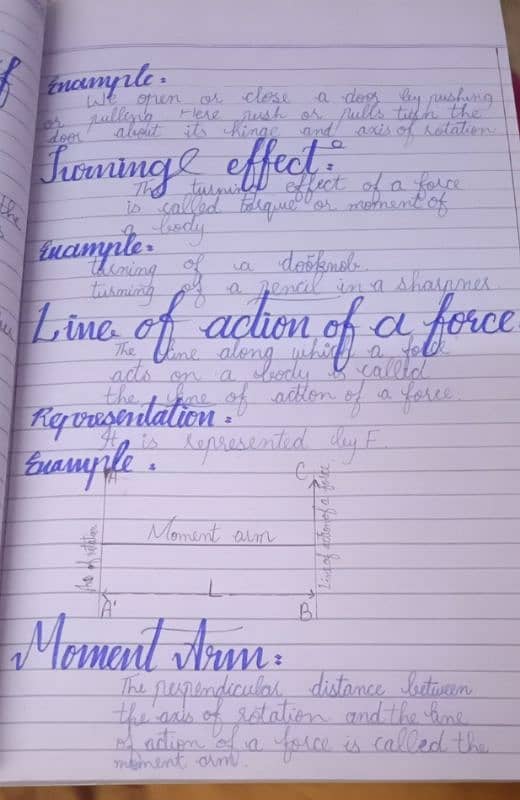 Example:
We open or close a door by pushing
or pulling Here push or pulls turn the
door about its hinge and axis of rotation
Turning effect:
The turning effect of a force
is called torque or moment of
a body
Example:
turning of a doorknob.
turning of a pencil in a sharpner
Line of action of a force
The line along which a force
acts on a body is called
the line of action of a force.
Representation:
It is represented by F.
Example:
A C
Axis of rotation
Moment arm
Line of action of a force
L
A' B
Moment Arm:
The perpendicular distance between
the axis of rotation and the line
of action of a force is called the
moment arm.